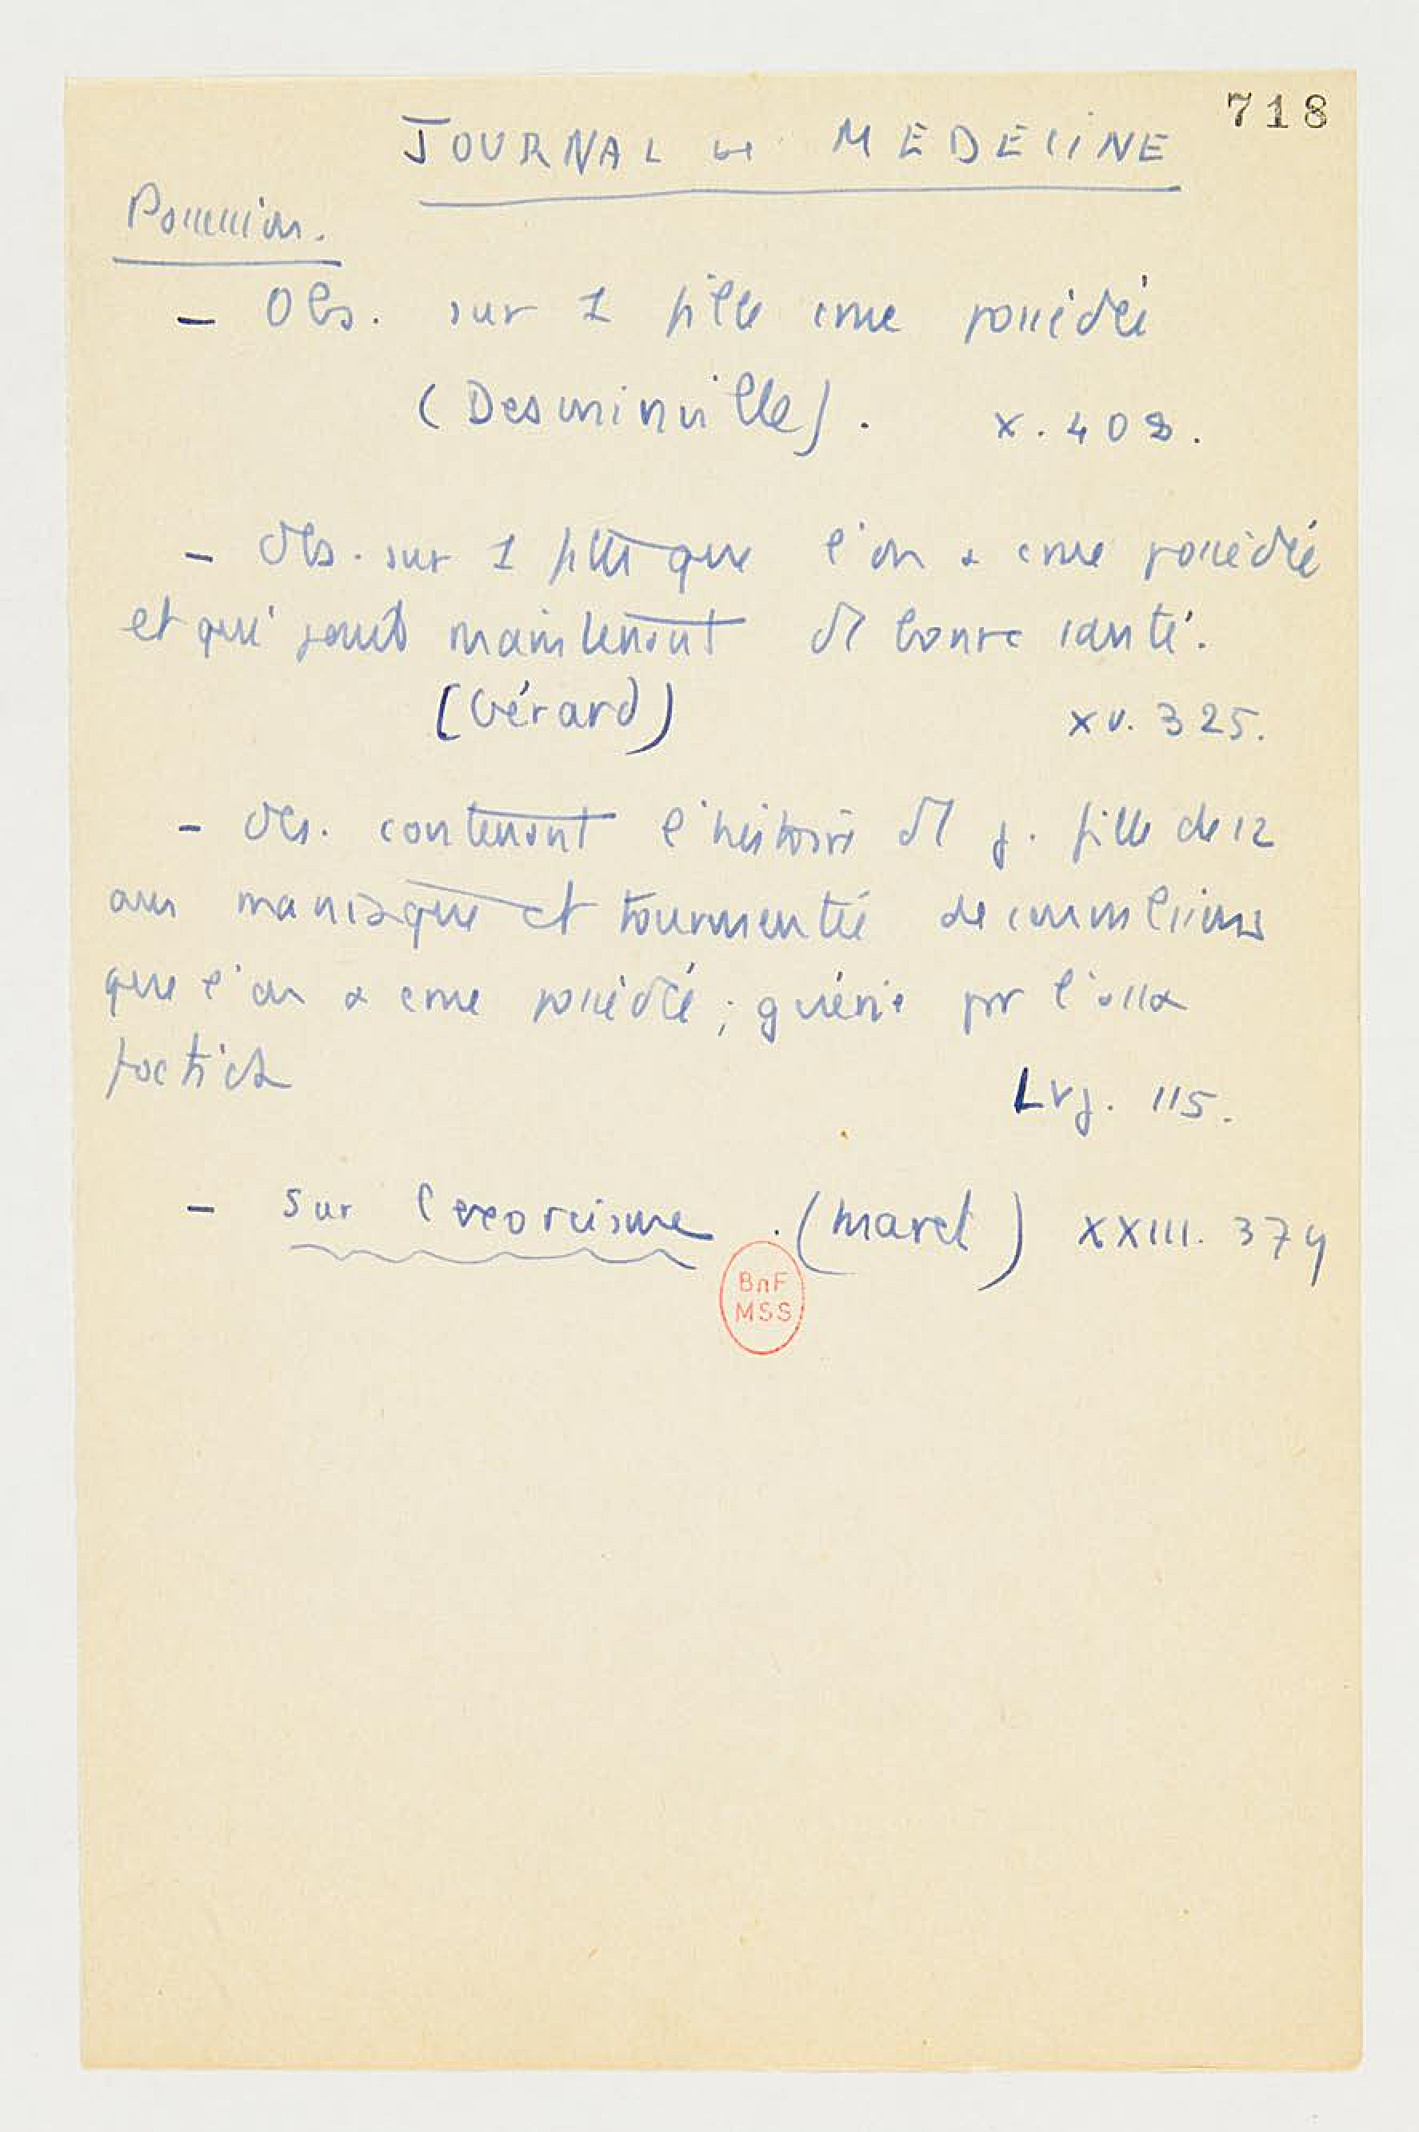 718
JOURNAL de MEDECINE
Possession.
- Obs. sur 1 fille crue possédée
(Desminville). X. 408.
- Obs. sur 1 fille que l'on a crue possédée
et qui jouit maintenant d'1 bonne santé.
(Gérard) XV. 325.
- Obs. contenant l'histoire d'1 j. fille de 12
ans maniaque et tourmentée de convulsions
que l'on a crue possédée ; guérie par l'assa
foetida
LVJ. 115.
- Sur l'exorcisme. (Maret) XXIII. 374
BnF
MSS